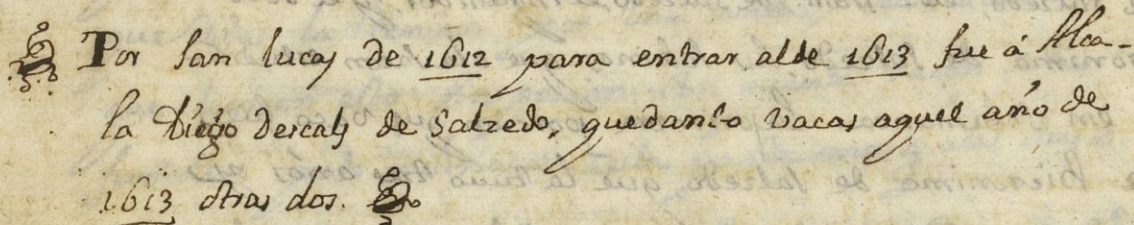 Por san lucas de 1612 para entrar alde 1613 fue á Alca-
la Diego Descals de Salzedo, quedando vacas aquel año de
1613 otras dos.